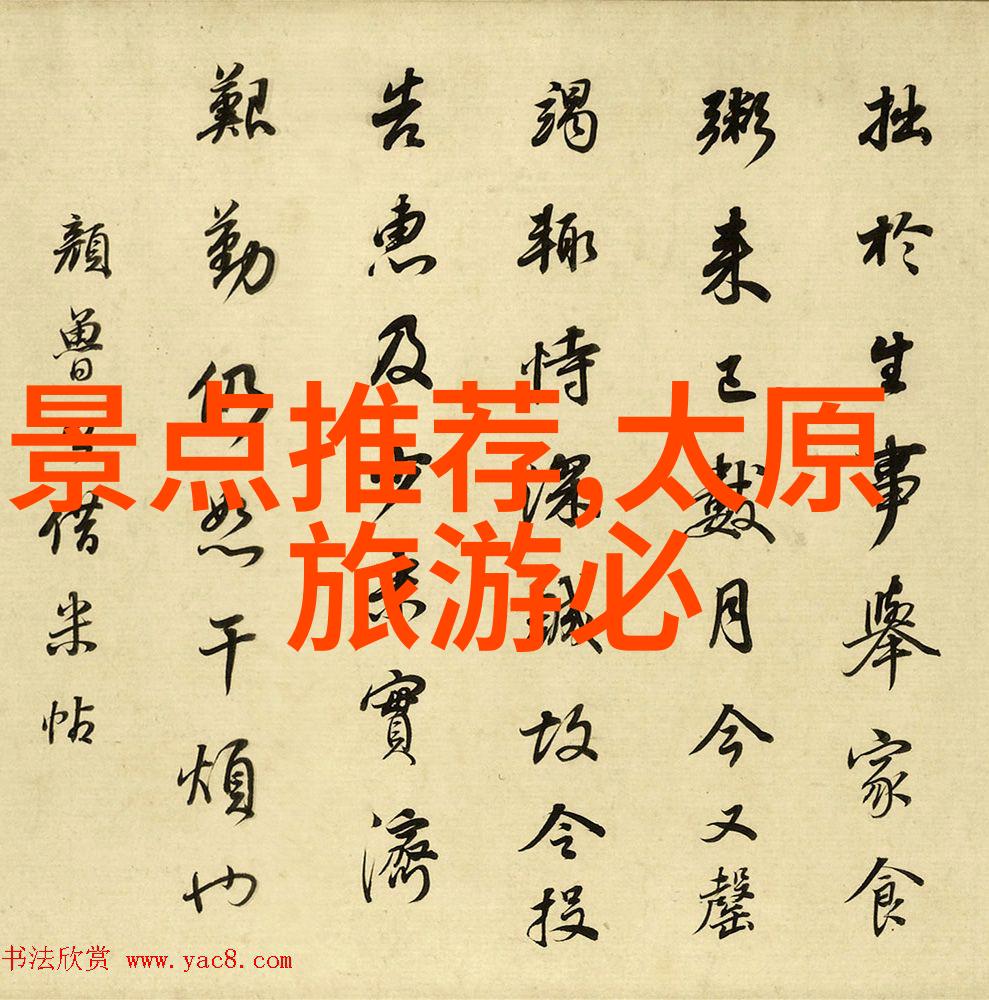 拙於生事舉家食
粥来已數月今又罄
竭輙恃深誠故令投
告惠及少米實濟
艱勤仍恕干煩也
顏魯公借米帖
景点推荐,太原
旅游必
书法欣赏 www.yac8.com